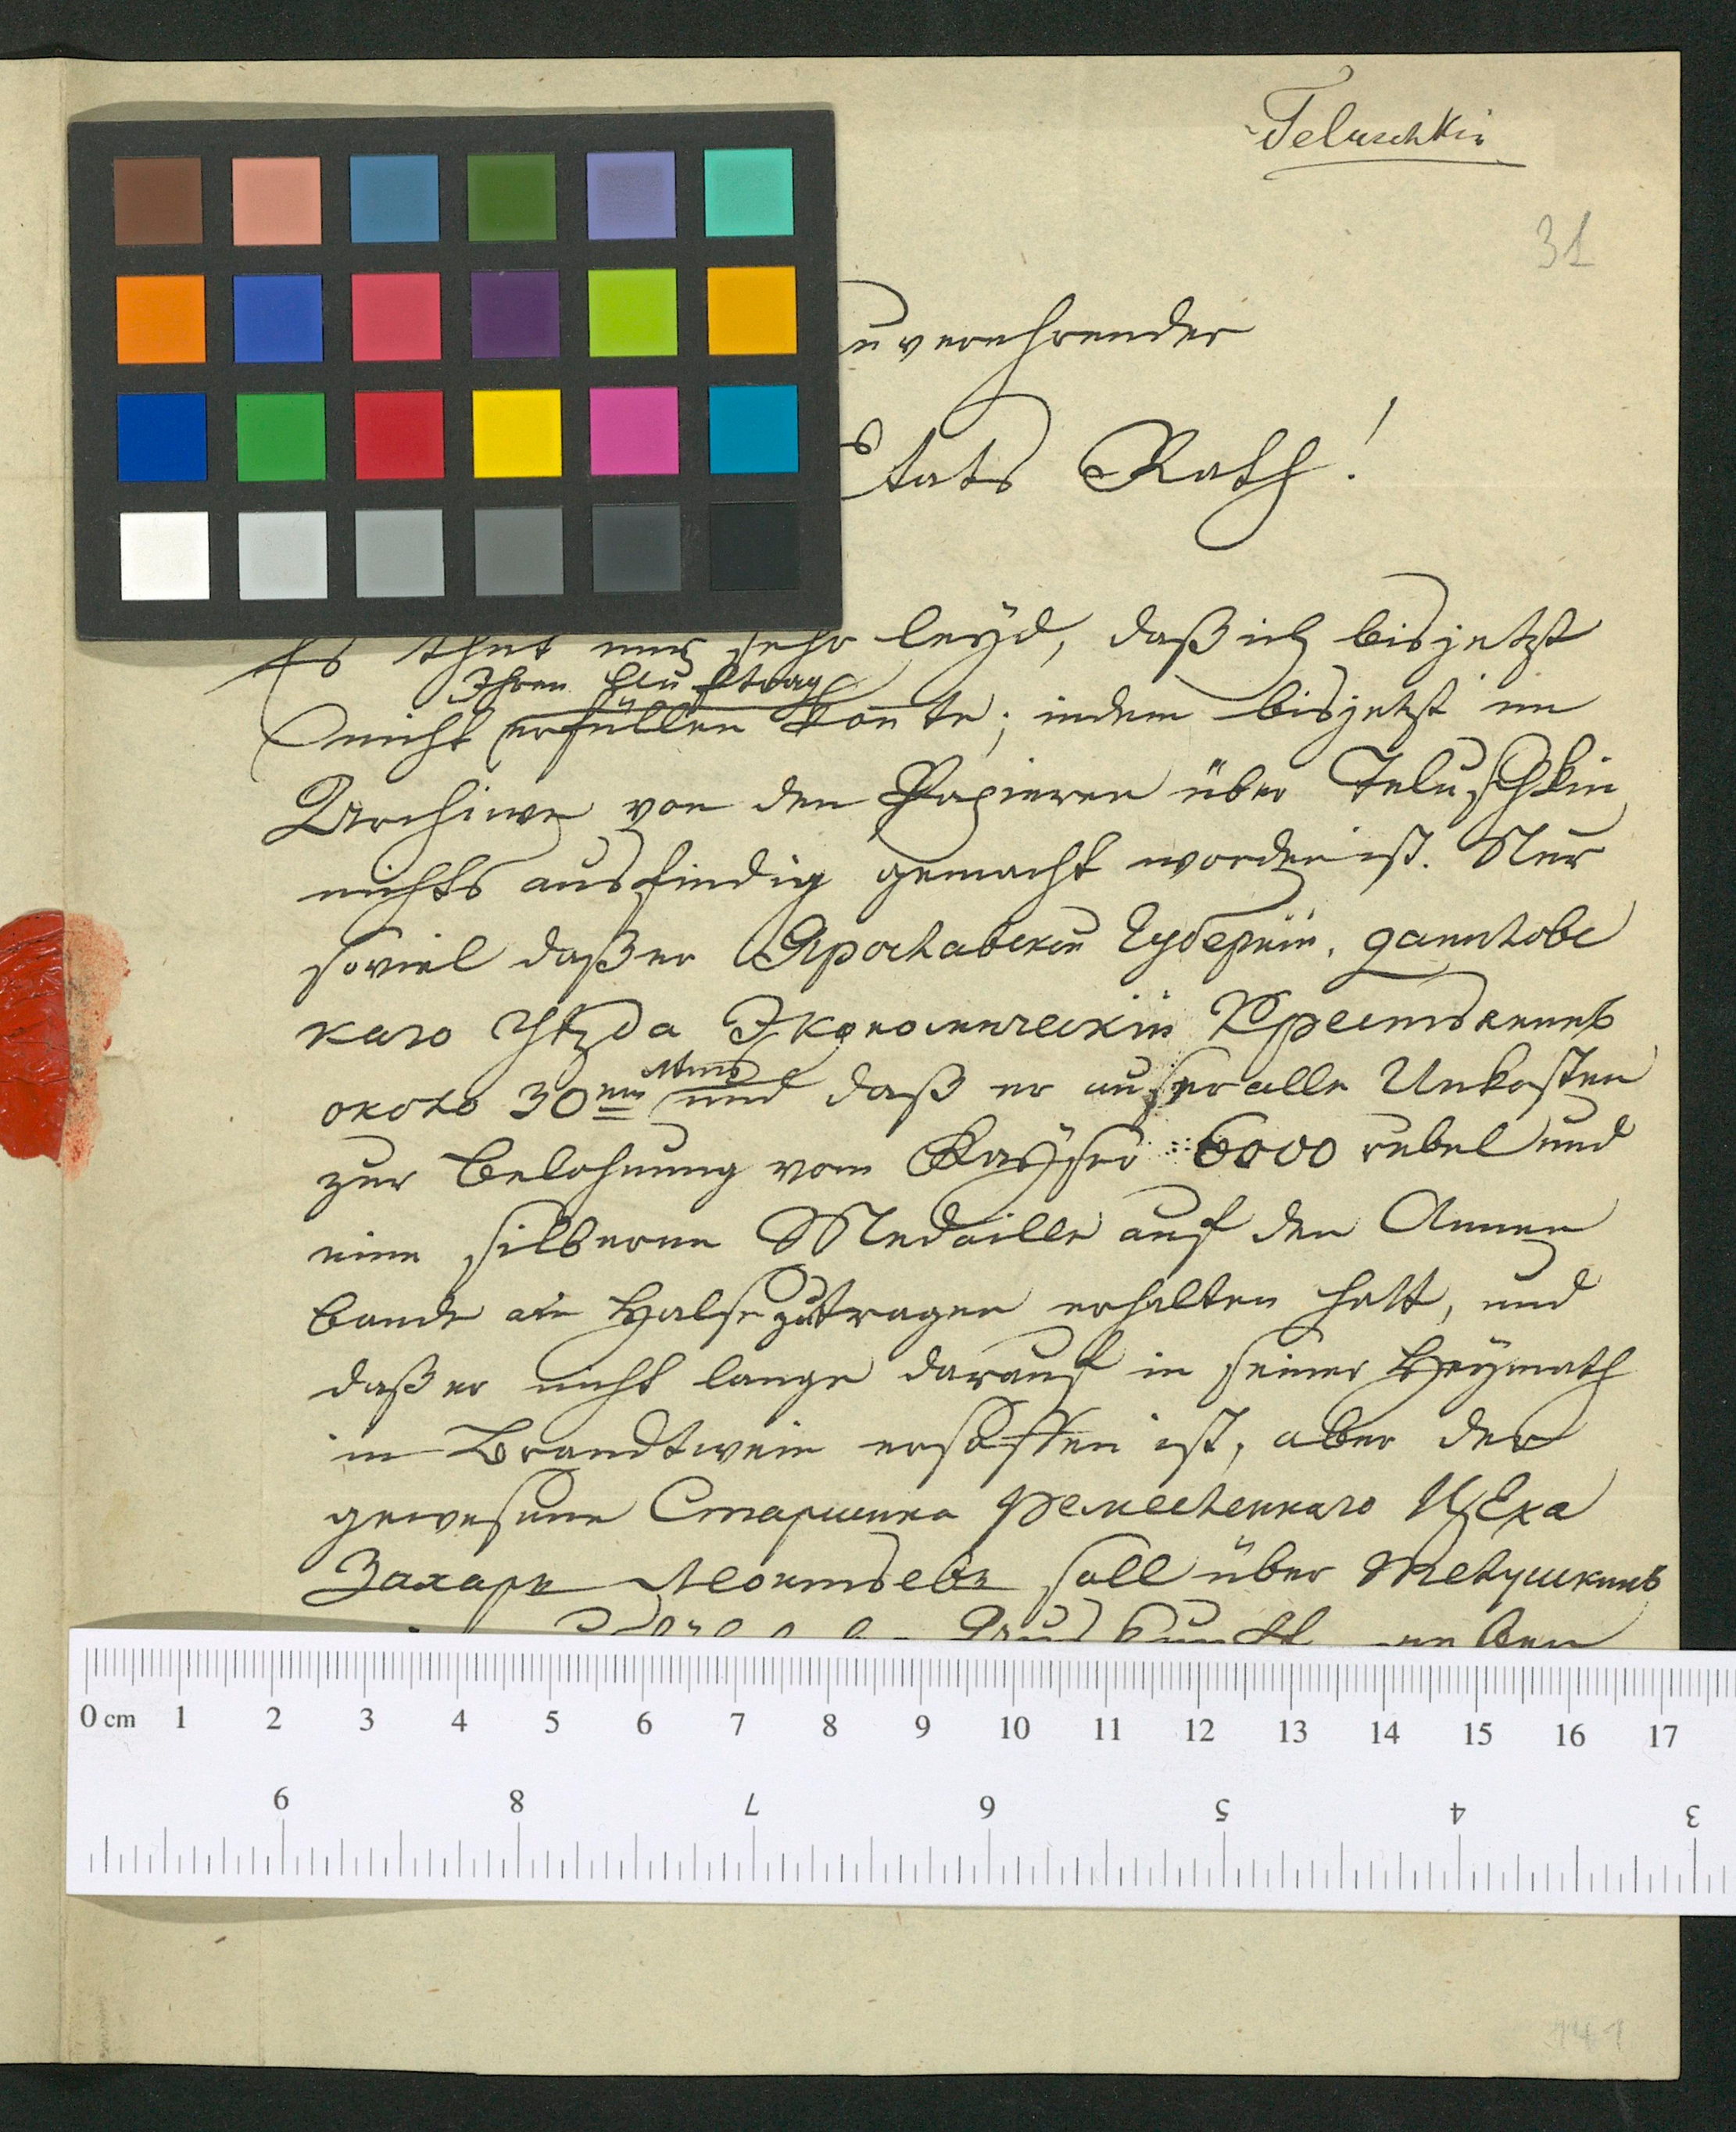 Teluschkin
31
uverehrender
tats Rath!
Es thut mir sehr leÿd, daß ich bis jetzt
Ihren Auftrag
nicht erfüllen konte; indem bis jetzt im
Archiwe von den Papieren über Teluschkin
nichts ausfindig gemacht worden ist. Nur
soviel daß er Ярославской Губернiи, Данилове
каго Уѣзда Экономическiй Крестьянинъ
около 30ти
лѣтъ
und daß er auser alle Unkosten
zur Belohnung vom Kaÿser 6000 rubel und
eine silberne Medaille auf den Annen
bande am Halse zu tragen erhalten hatt, und
daß er nicht lange darauf in seiner Heÿmath
im Brandtwein ersoffen ist, aber der
gewesene Старшина ремесленнаго Цеха
Захаръ Леонтьевъ soll über Телушкинъ
Auskunft geben
0 cm 1 2 3 4 5 6 7 8 9 10 11 12 13 14 15 16 17
9 8 7 6 5 4 3
141